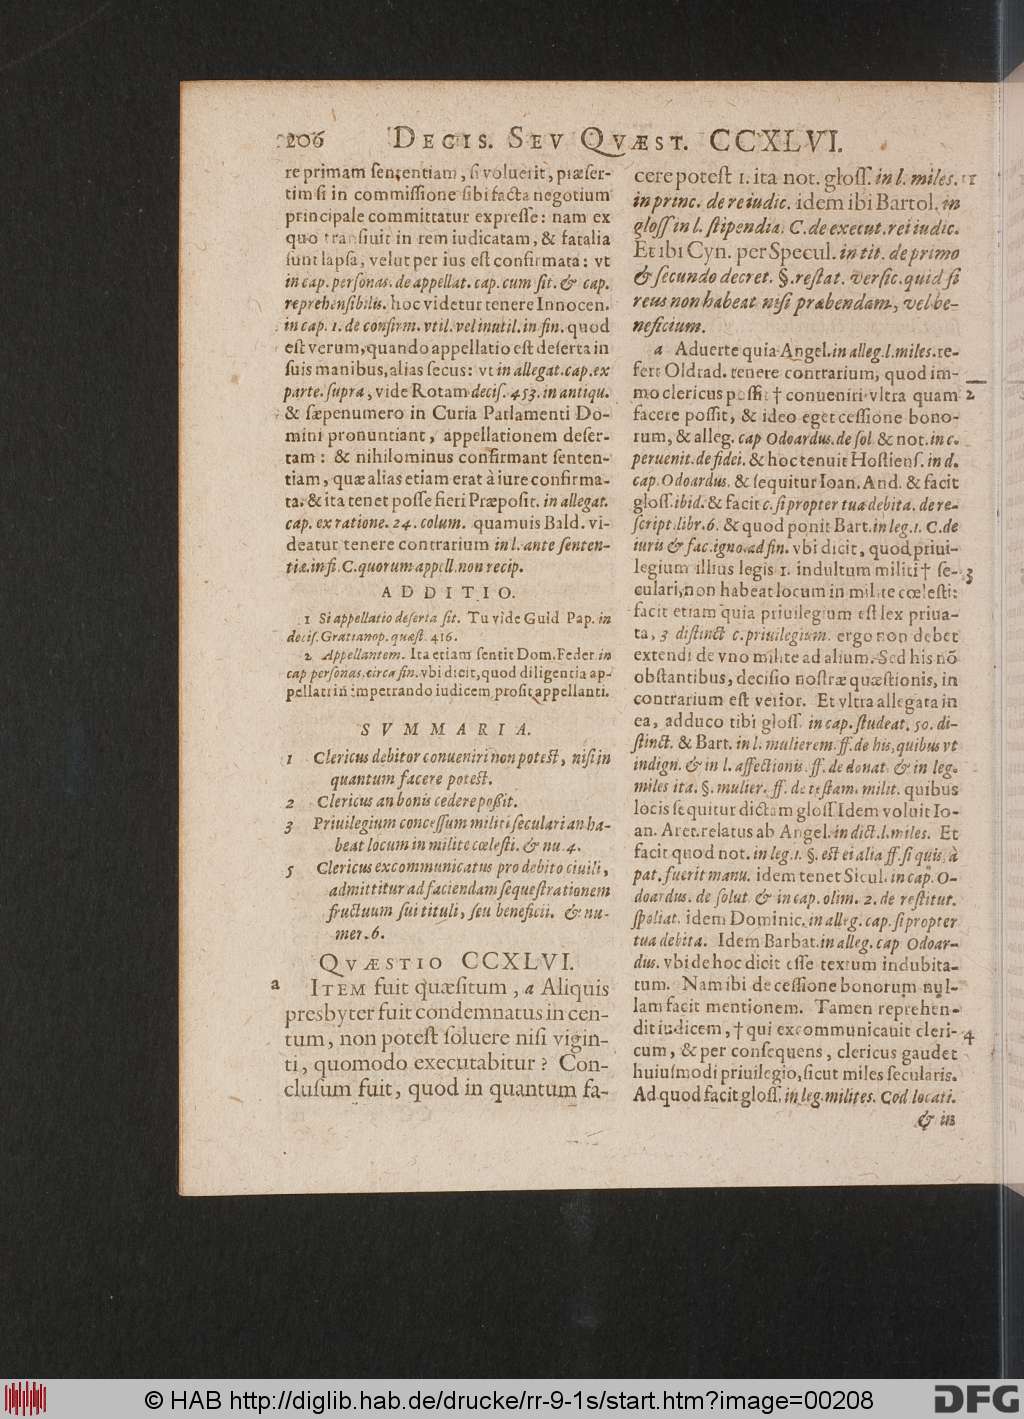 206 DECIS. SEV QVÆST. CCXLVI.
re primam sententiam, si voluerit, præser-
tim si in commissione sibi facta negotium
principale committatur expresse: nam ex
quo transiuit in rem iudicatam, & fatalia
sunt lapsa, velut per ius est confirmata: vt
in cap. personas. de appellat. cap. cum sit. & cap.
reprehensibilis. hoc videtur tenere Innocen.
in cap. 1. de confirm. vtil. vel inutil. in fin. quod
est verum, quando appellatio est deserta in
suis manibus, alias secus: vt in allegat. cap. ex
parte. supra, vide Rotam decis. 453. in antiqu.
& sæpenumero in Curia Parlamenti Do-
mini pronuntiant, appellationem deser-
tam: & nihilominus confirmant senten-
tiam, quæ alias etiam erat à iure confirma-
ta. & ita tenet posse fieri Præposit. in allegat.
cap. ex ratione. 24. colum. quamuis Bald. vi-
deatur tenere contrarium in l. ante senten-
tiæ. in fi. C. quorum appell. non recip.
ADDITIO.
1 Si appellatio deserta sit. Tu vide Guid Pap. in
decis. Gratianop. quæst. 416.
2 Appellantem. Ita etiam sentit Dom. Feder. in
cap personas. circa fin. vbi dicit, quod diligentia ap-
pellati in impetrando iudicem prosit appellanti.
SVMMARIA.
1 Clericus debitor conueniri non potest, nisi in
quantum facere potest.
2 Clericus an bonis cedere possit.
3 Priuilegium concessum militi seculari an ha-
beat locum in milite cœlesti. & nu. 4.
5 Clericus excommunicatus pro debito ciuili,
admittitur ad faciendam sequestrationem
fructuum sui tituli, seu beneficii. & nu-
mer. 6.
QVÆSTIO CCXLVI.
a ITEM fuit quæsitum, a Aliquis
presbyter fuit condemnatus in cen-
tum, non potest soluere nisi vigin-
ti, quomodo executabitur? Con-
clusum fuit, quod in quantum fa-
cere potest 1. ita not. gloss. in l. miles. 1
in princ. de re iudic. idem ibi Bartol. in
gloss in l. stipendia. C. de execut. rei iudic.
Et ibi Cyn. per Specul. in tit. de primo
& secundo decret. §. restat. versic. quid si
reus non habeat nisi præbendam, vel be-
neficium.
a Aduerte quia Angel. in alleg. l. miles. re-
fert Oldrad. tenere contrarium, quod im-
mo clericus possit † conueniri vltra quam 2
facere possit, & ideo eget cessione bono-
rum, & alleg. cap Odoardus. de sol & not. in c.
peruenit. de fidei. & hoc tenuit Hostiens. in d.
cap. Odoardus. & sequitur Ioan. And. & facit
gloss. ibid. & facit c. si propter tua debita. de re-
script. libr. 6. & quod ponit Bart. in leg. 1. C. de
iuris & fac. igno. ad fin. vbi dicit, quod priui-
legium illius legis 1. indultum militi † se- 3
culari, non habeat locum in milite cœlesti:
facit etiam quia priuilegium est lex priua-
ta, 3 distinct c. priuilegium. ergo non debet
extendi de vno milite ad alium. Sed his nõ
obstantibus, decisio nostræ quæstionis, in
contrarium est verior. Et vltra allegata in
ea, adduco tibi gloss. in cap. studeat. 50. di-
stinct. & Bart. in l. mulierem. ff. de his, quibus vt
indign. & in l. affectionis. ff. de donat. & in leg.
miles ita. §. mulier. ff. de testam. milit. quibus
locis sequitur dictam gloss Idem voluit Io-
an. Aret. relatus ab Angel. in dict. l. miles. Et
facit quod not. in leg. 1. §. est ei alia ff. si quis à
pat. fuerit manu. idem tenet Sicul. in cap. O-
doardus. de solut & in cap. olim. 2. de restitut.
spoliat. idem Dominic. in alleg. cap. si propter
tua debita. Idem Barbat. in alleg. cap Odoar-
dus. vbi de hoc dicit esse textum indubita-
tum. Nam ibi de cessione bonorum nul-
lam facit mentionem. Tamen reprehen-
dit iudicem, † qui excommunicauit cleri- 4
cum, & per consequens, clericus gaudet
huiusmodi priuilegio, sicut miles secularis.
Ad quod facit gloss. in leg. milites. Cod locati.
& in
© HAB http://diglib.hab.de/drucke/rr-9-1s/start.htm?image=00208
DFG